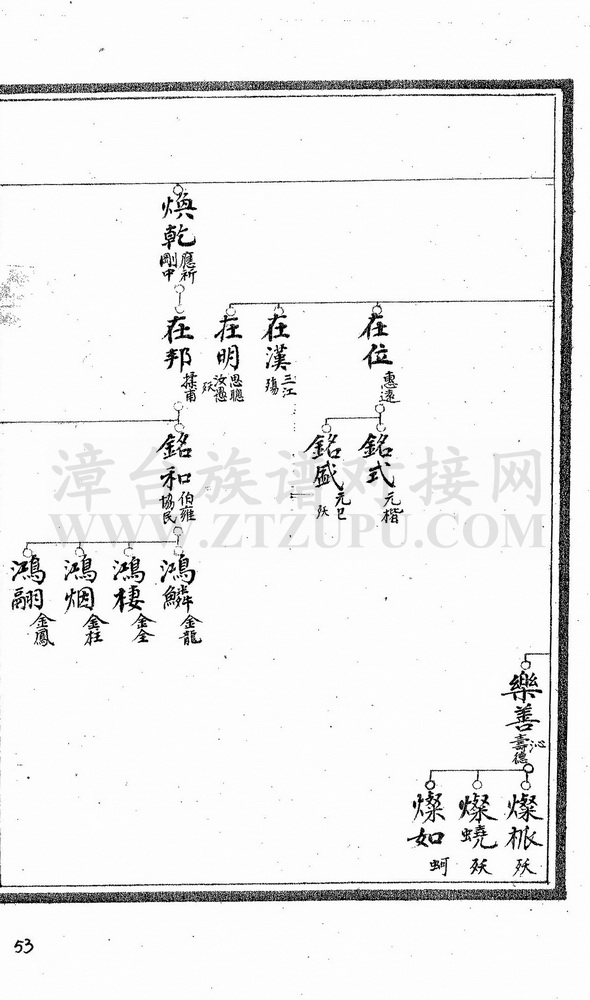 煥乾
應祈
剛中
在位
惠遠
在漢
三江
殤
在明
思聰
汝憑
殀
在邦
揉甫
銘式
元楷
銘盛
元巳
殀
銘和
伯雍
協民
鴻鱗
金龍
鴻棲
金全
鴻烟
金柱
鴻翮
金鳳
樂善
沁
壽德
燦桹
殀
燦蟯
殀
燦如
蚵
漳台族谱对接网
WWW.ZTZUPU.COM
53